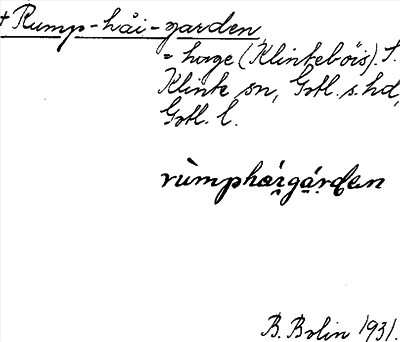 + Rump-håi-garden,
= hage (Klinteböis). S.
Klinte sn, Gotl. s. hd,
Gotl. l.
rùmpháɪgárden
B. Bolin 1931.